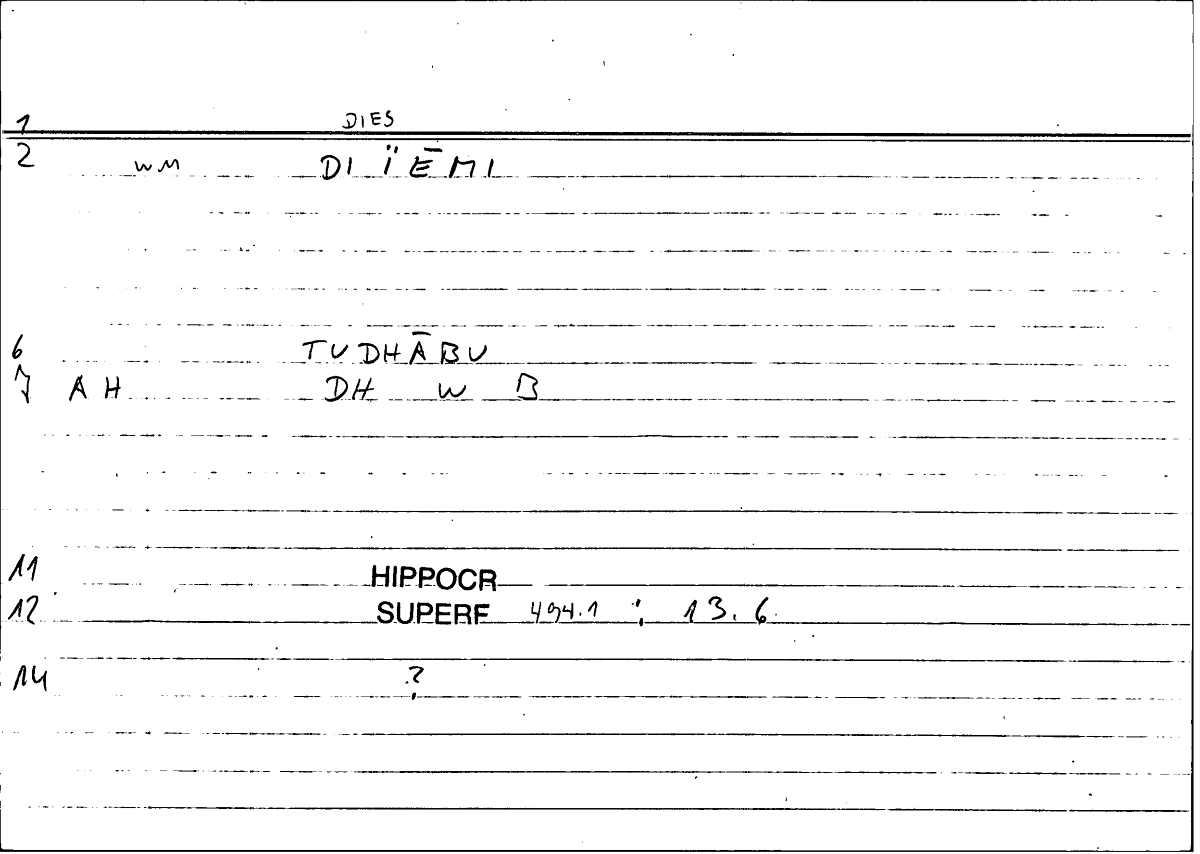 1 DIES
2 WM DI Ï Ē MI
6 TUDHĀBU
7 AH DH W B
11 HIPPOCR
12 SUPERF 494.1 ; 13.6.
14 ?